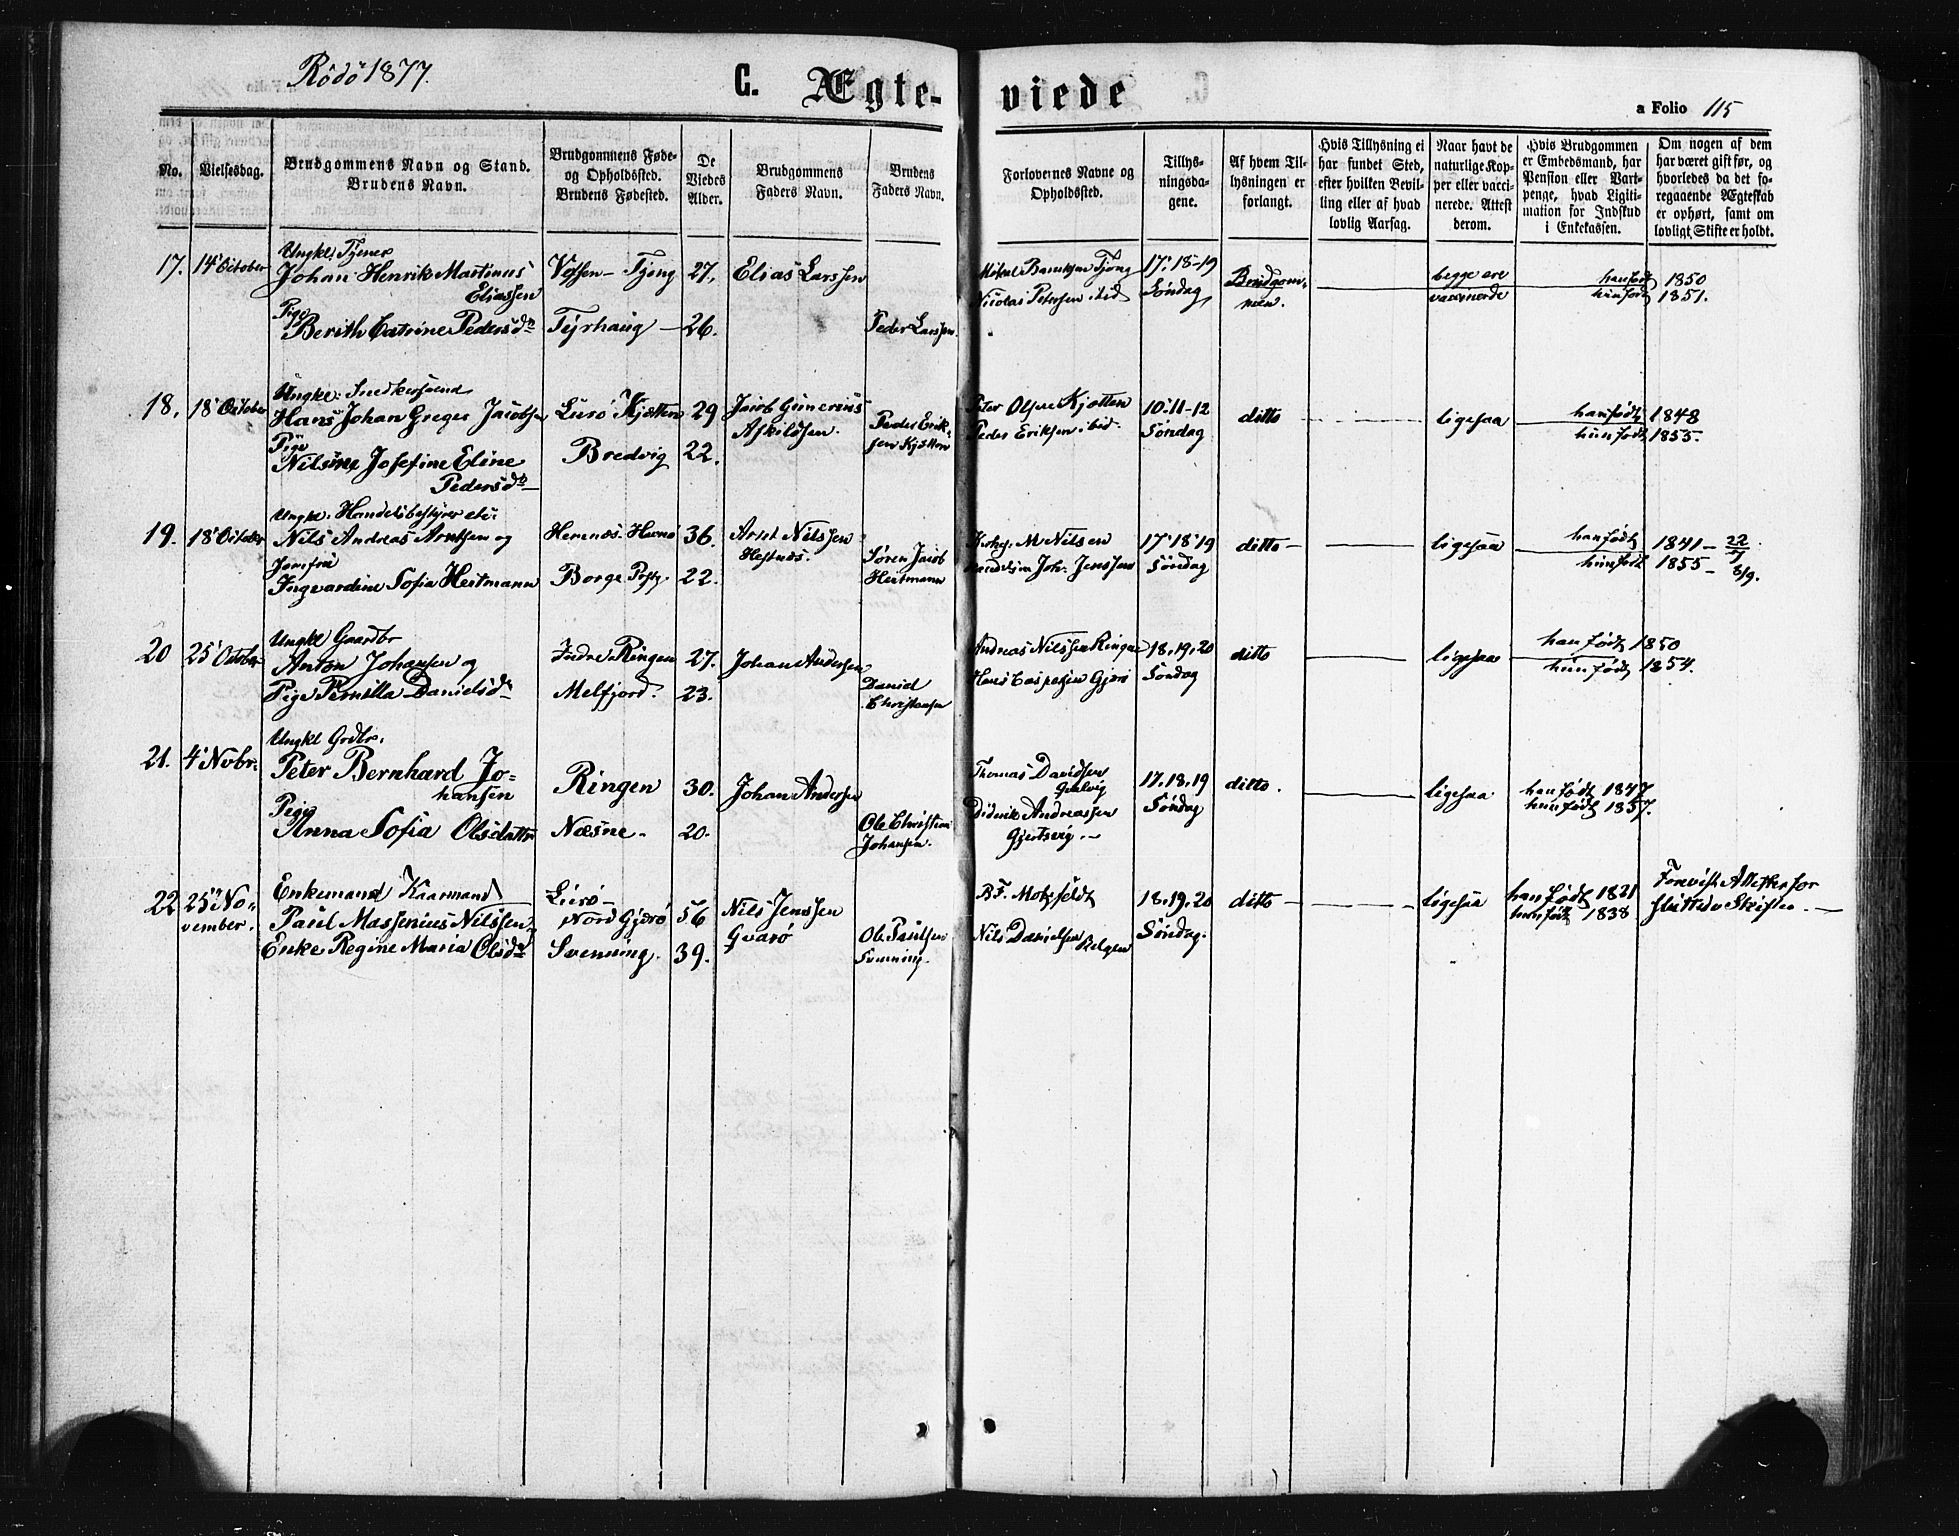 Rödö 1877.
C. Ægte-viede
a Folio 115
No.
Vielsesdag.
Brudgommens Navn og Stand.
Brudens Navn.
Brudgommens Føde-
og Opholdssted.
Brudens Fødested.
De
Viedes
Alder.
Brudgommens
Faders Navn.
Brudens
Faders Navn.
Forlovernes Navne og
Opholdssted.
Tillys-
ningsda-
gene.
Af hvem Til-
lysningen er
forlangt.
Hvis Tillysning ei
har fundet Sted,
efter hvilken Bevil-
ling eller af hvad
lovlig Aarsag.
Naar havt de
naturlige Kop-
per eller vacci-
nerede. Attest
derom.
Hvis Brudgommen
er Embedsmand, har
Pension eller Vart-
penge, hvad Ligiti-
mation for Indskud
i Enkekassen.
Om nogen af dem
har været gift før, og
hvorledes da det fo-
regaaende Ægteskab
er ophørt, samt om
lovligt Skifte er holdt.
17. 14 October
Ungkl. Tjener
Johan Henrik Martinus
Eliassen
Pige
Berith Catrine Pedersdr
Tjong
Tyrhaug
27.
26.
Elias Larssen
Peder Larssen
Nicolai Petersen ibid
17. 18-19
Söndag
Brudgom-
men.
begge ere
vaccinerede
han født 1850
hun født 1851.
18. 18 October
Ungkl. Snedkersvend
Hans Johan Greger Jacobsen
Pige
Nilsine Josefine Eline
Pedersdr
Lurö Kjøtten
Bredvig
29
22.
Jacob Gunerius
Askildsen.
Peder Erik-
sen Kjøtten
Peter Olsen Kjøtten
Peder Eriksen ibid.
10. 11-12
Søndag
ditto
ligesaa
han født 1848
hun født 1855.
19. 18 October
Ungkl. Handelsbestyrer etc.
Nils Andreas Arntsen og
Jomfru
Ingvardine Sofia Heitmann
Borge Pgfg.
36.
22.
Arnt Nilssen
Hestnæs.
Søren Jacob
Heitmann
M Nilsen
Joh. Jenssen
17. 18. 19
Söndag
ditto
ligesaa
han født 1841 - 22/7
hun født 1855 - 8/9.
20 25 October
Ungkl Gaardbr
Anton Johansen og
Pige Pernilla Danielsdr
Indre Ringen
Melfjord.
27.
23.
Johan Andersen
Daniel
Christensen
Andreas Nilssen Ringen
Hans Caspersen Gjerö
18, 19, 20
Söndag
ditto
ligesaa
han født 1850
hun født 1854.
21. 4 Novbr.
Ungkl Grdbr.
Peter Bernhard Jo-
hansen
Pige
Anna Sofia Olsdatter
Ringen
Næsne.
30.
20.
Johan Andersen
Ole Christian
Johansen.
Thomas Davidsen
Diderik Andreassen
Gjertsvig.
17. 18. 19
Söndag
ditto.
ligesaa
han født 1847
hun født 1857.
22 25 No-
vember.
Enkemand Kaarmand
Paul Massenius Nilssen
Enke Regine Maria Olsdr
Lurö-
Nord Gjerö
Svenning.
56
39.
Nils Jenssen
Gvarö
Ole Paulsen
Svenning.
B.F. Motzfeldt
Nils Danielsen Selgen
18. 19. 20
Söndag.
ditto
ligesaa
han født 1821
hun født 1838
Forevist Attester for
sluttede Skifter.